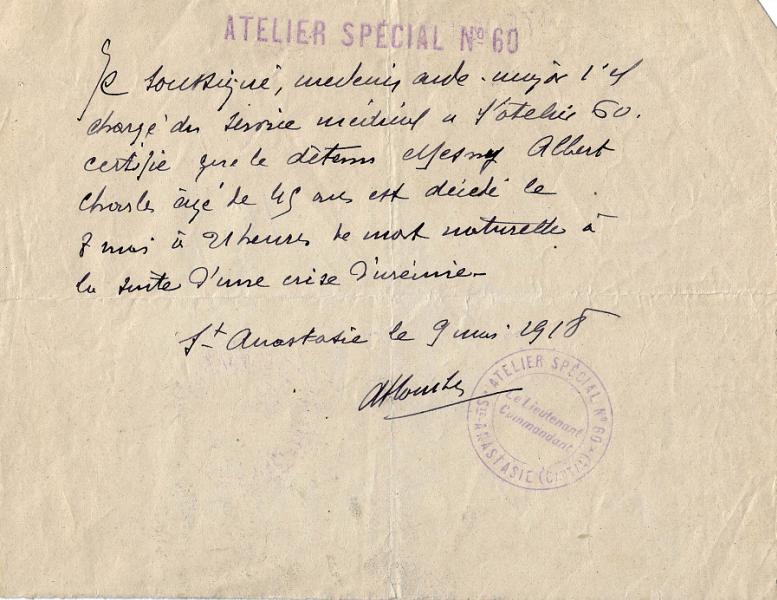 ATELIER SPÉCIAL No 60
Je soussigné, medecin aide-major
chargé du service médical a l'atelier 60.
certifie que le détenu Mesny Albert
Charles âgé de 45 ans est décédé le
mai à 21 heures de mort naturelle à
la suite d'une crise d'urémie-
St Anastasie le 9 mai 1918
ATELIER SPÉCIAL No 60
Ste ANASTASIE
Le Lieutenant
Commandant